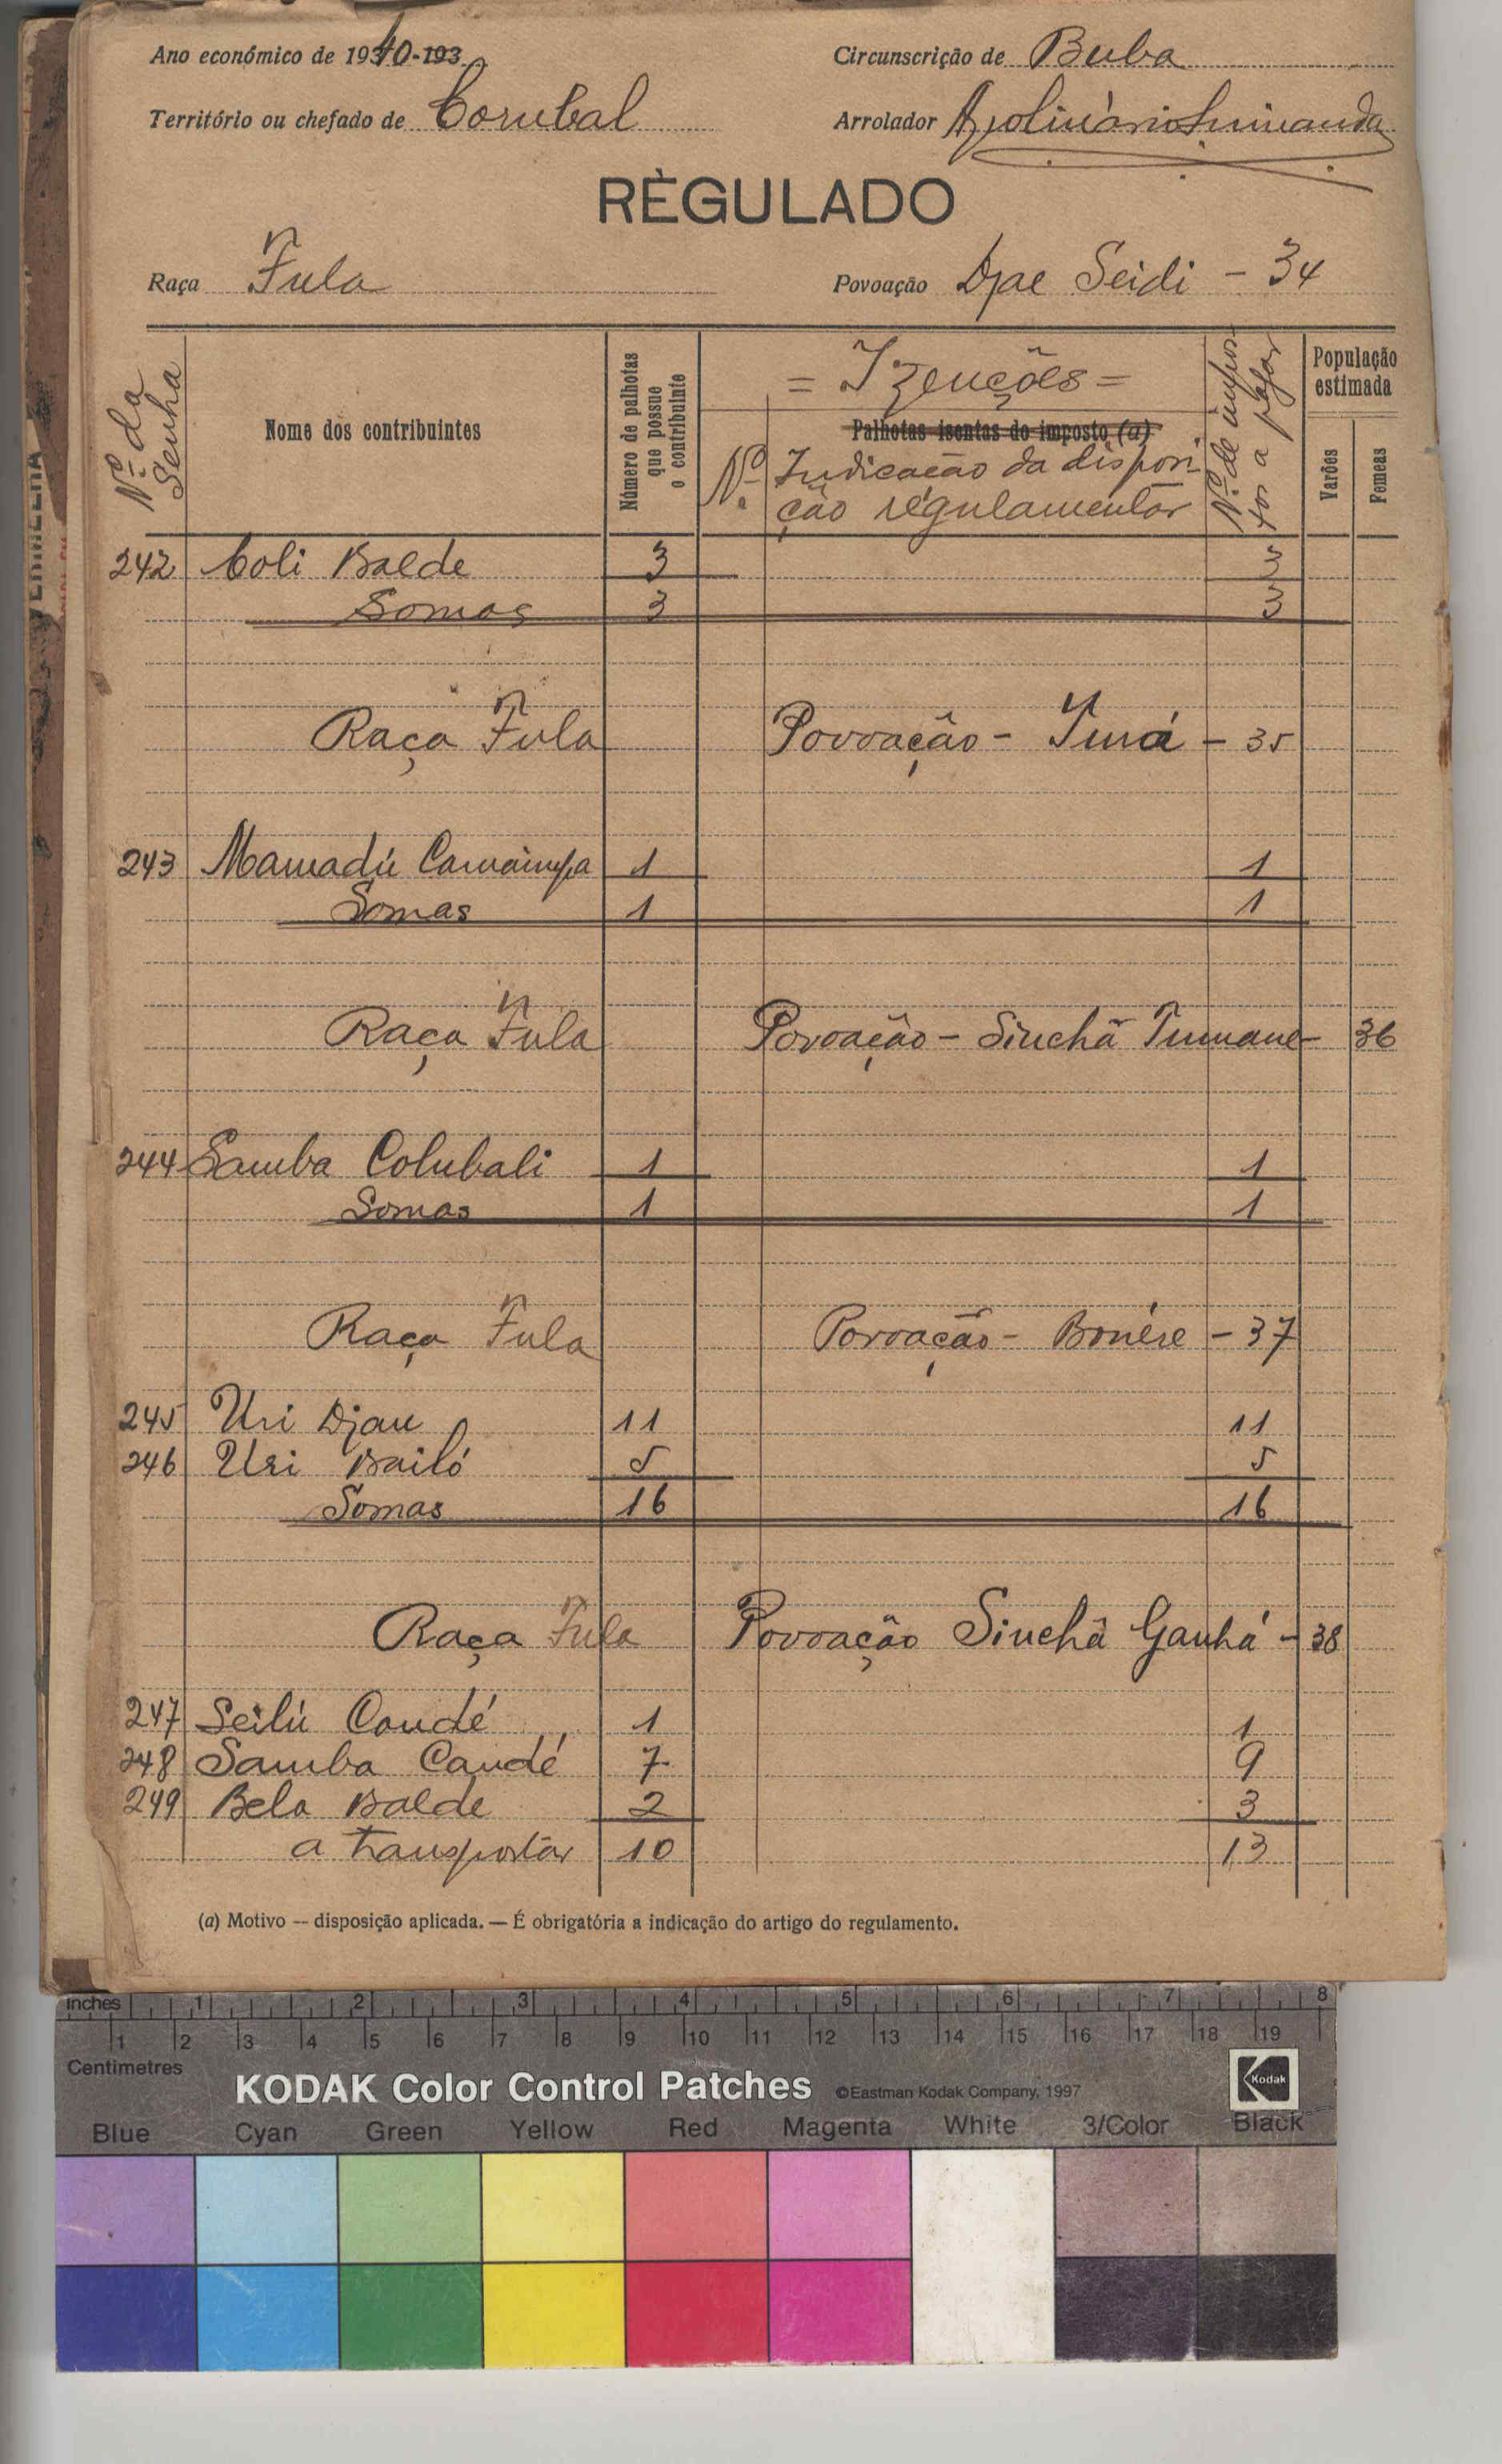 Ano económico de 1940-193
Circunscrição de Buba
Território ou chefado de Corubal
Arrolador Apolinário Miranda
RÈGULADO
Raça Fula
Povoação Djae Seidi - 34
Nº da Senha
Nome dos contribuintes
Número de palhotas que possue o contribuinte
= Izenções =
Palhotas isentas do imposto (a)
Nº Indicação da disposi
ção régulamentar
Nº de impos-
tos a pagar
População estimada
Varões
Femeas
242 Coli Balde 3 3
Somas 3 3
Raça Fula Povoação - - 35
243 Mamadú 1 1
Somas 1 1
Raça Fula Povoação - Sinchã Tumane - 36
244 Samba Colubali 1 1
Somas 1 1
Raça Fula Povoação - Bonére - 37
245 Uri Djau 11 11
246 Uri Bailó 5 5
Somas 16 16
Raça Fula Povoação Sinchã Ganhá - 38
247 Seilú Candé 1 1
248 Samba Candé 7 9
249 Bela Balde 2 3
a transportar 10 13
(a) Motivo — disposição aplicada. — É obrigatória a indicação do artigo do regulamento.
inches 1 2 3 4 5 6 7 8
1 2 3 4 5 6 7 8 9 10 11 12 13 14 15 16 17 18 19
Centimetres
KODAK Color Control Patches ©Eastman Kodak Company, 1997 Kodak
Blue Cyan Green Yellow Red Magenta White 3/Color Black